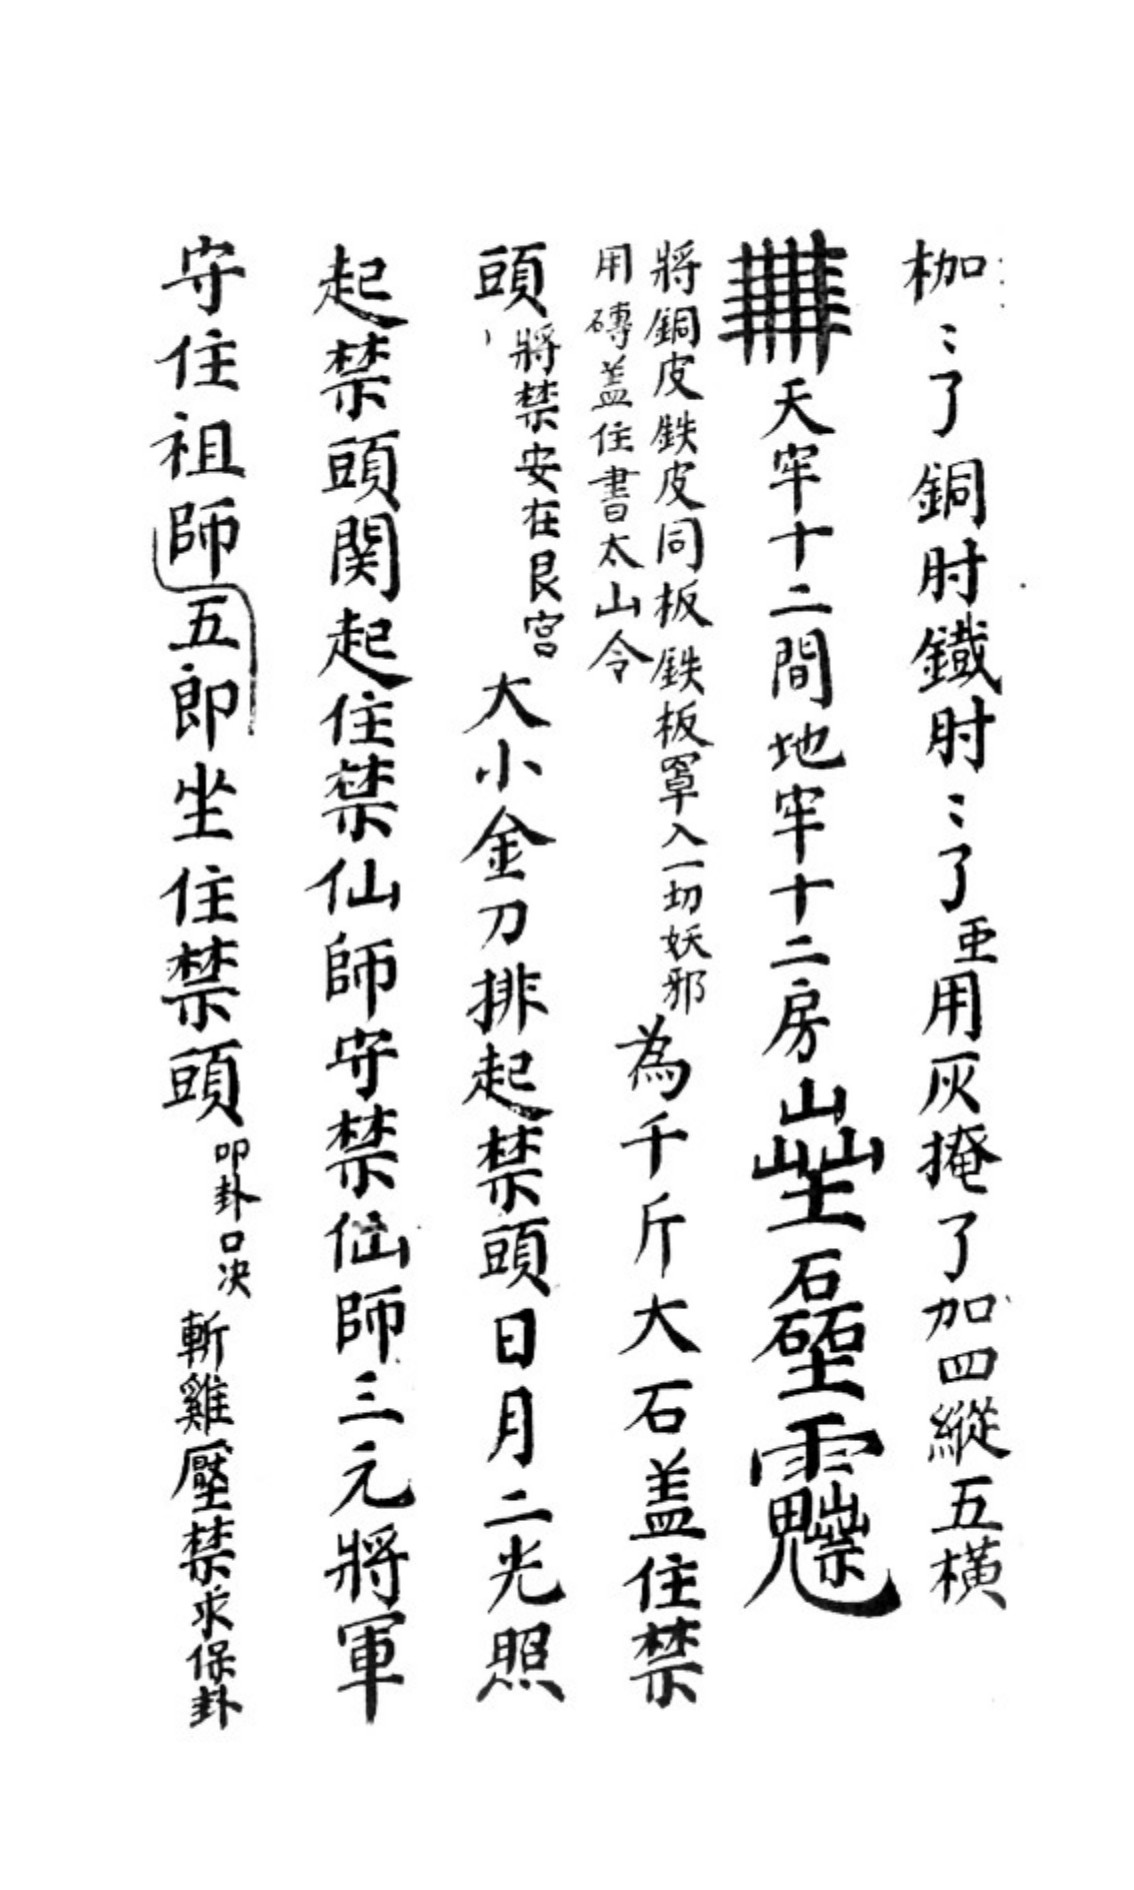 枷〻了銅肘鐵肘〻了亜用灰掩了加四縱五橫
天牢十二間地牢十二房
將銅皮鉄皮同板鉄板罩入一切妖邪
用磚盖住書太山令
為千斤大石盖住禁
頭
將禁安在艮宮
大小金刀排起禁頭日月二光照
起禁頭関起住禁仙師守禁仙師三元將軍
守住祖師五郎坐住禁頭
叩卦口决
斬雞壓禁求保卦